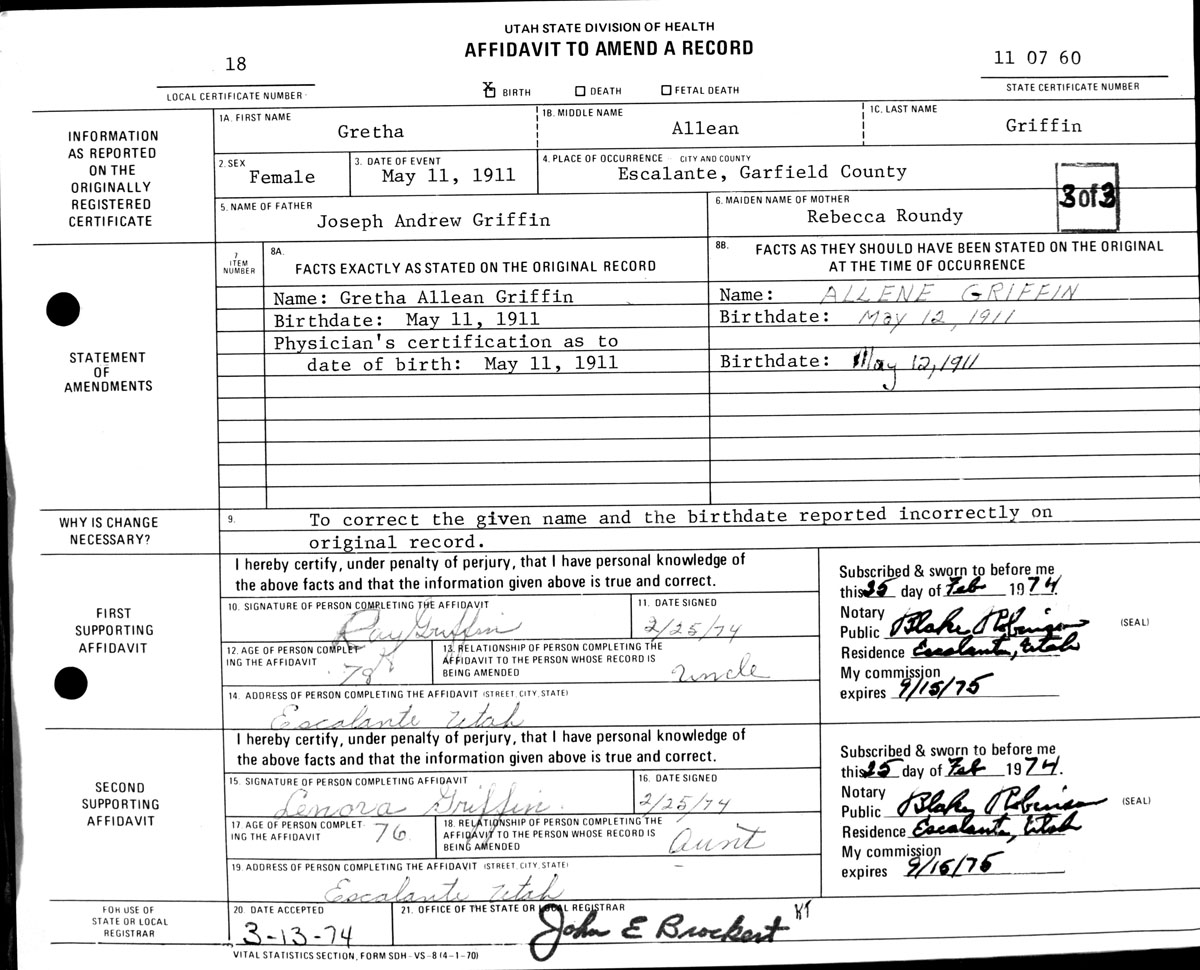 UTAH STATE DIVISION OF HEALTH
AFFIDAVIT TO AMEND A RECORD
18
LOCAL CERTIFICATE NUMBER
X BIRTH DEATH FETAL DEATH
11 07 60
STATE CERTIFICATE NUMBER
INFORMATION
AS REPORTED
ON THE
ORIGINALLY
REGISTERED
CERTIFICATE
1A. FIRST NAME
Gretha
1B. MIDDLE NAME
Allean
1C. LAST NAME
Griffin
2. SEX
Female
3. DATE OF EVENT
May 11, 1911
4. PLACE OF OCCURRENCE - CITY AND COUNTY
Escalante, Garfield County
3 of 3
5. NAME OF FATHER
Joseph Andrew Griffin
6. MAIDEN NAME OF MOTHER
Rebecca Roundy
STATEMENT
OF
AMENDMENTS
7.
ITEM
NUMBER
8A.
FACTS EXACTLY AS STATED ON THE ORIGINAL RECORD
8B. FACTS AS THEY SHOULD HAVE BEEN STATED ON THE ORIGINAL
AT THE TIME OF OCCURRENCE
Name: Gretha Allean Griffin
Name: ALLENE GRIFFIN
Birthdate: May 11, 1911
Birthdate: May 12, 1911
Physician's certification as to
date of birth: May 11, 1911
Birthdate: May 12, 1911
WHY IS CHANGE
NECESSARY?
9. To correct the given name and the birthdate reported incorrectly on
original record.
FIRST
SUPPORTING
AFFIDAVIT
I hereby certify, under penalty of perjury, that I have personal knowledge of
the above facts and that the information given above is true and correct.
10. SIGNATURE OF PERSON COMPLETING THE AFFIDAVIT
Ray Griffin
11. DATE SIGNED
2/25/74
12. AGE OF PERSON COMPLET
ING THE AFFIDAVIT
78
13. RELATIONSHIP OF PERSON COMPLETING THE
AFFIDAVIT TO THE PERSON WHOSE RECORD IS
BEING AMENDED
Uncle
14. ADDRESS OF PERSON COMPLETING THE AFFIDAVIT (STREET, CITY, STATE)
Escalante Utah
Subscribed & sworn to before me
this 25 day of Feb 1974
Notary
Public Blake Robinson
(SEAL)
Residence Escalante, Utah
My commission
expires 9/15/75
SECOND
SUPPORTING
AFFIDAVIT
I hereby certify, under penalty of perjury, that I have personal knowledge of
the above facts and that the information given above is true and correct.
15. SIGNATURE OF PERSON COMPLETING AFFIDAVIT
Lenora Griffin
16. DATE SIGNED
2/25/74
17. AGE OF PERSON COMPLET
ING THE AFFIDAVIT
76
18. RELATIONSHIP OF PERSON COMPLETING THE
AFFIDAVIT TO THE PERSON WHOSE RECORD IS
BEING AMENDED
Aunt
19. ADDRESS OF PERSON COMPLETING THE AFFIDAVIT (STREET, CITY, STATE)
Escalante Utah
Subscribed & sworn to before me
this 25 day of Feb 1974.
Notary
Public Blake Robinson
(SEAL)
Residence Escalante, Utah
My commission
expires 9/15/75
FOR USE OF
STATE OR LOCAL
REGISTRAR
20. DATE ACCEPTED
3-13-74
21. OFFICE OF THE STATE OR LOCAL REGISTRAR
John E Brockert
VITAL STATISTICS SECTION, FORM SDH-VS-8 (4-1-70)